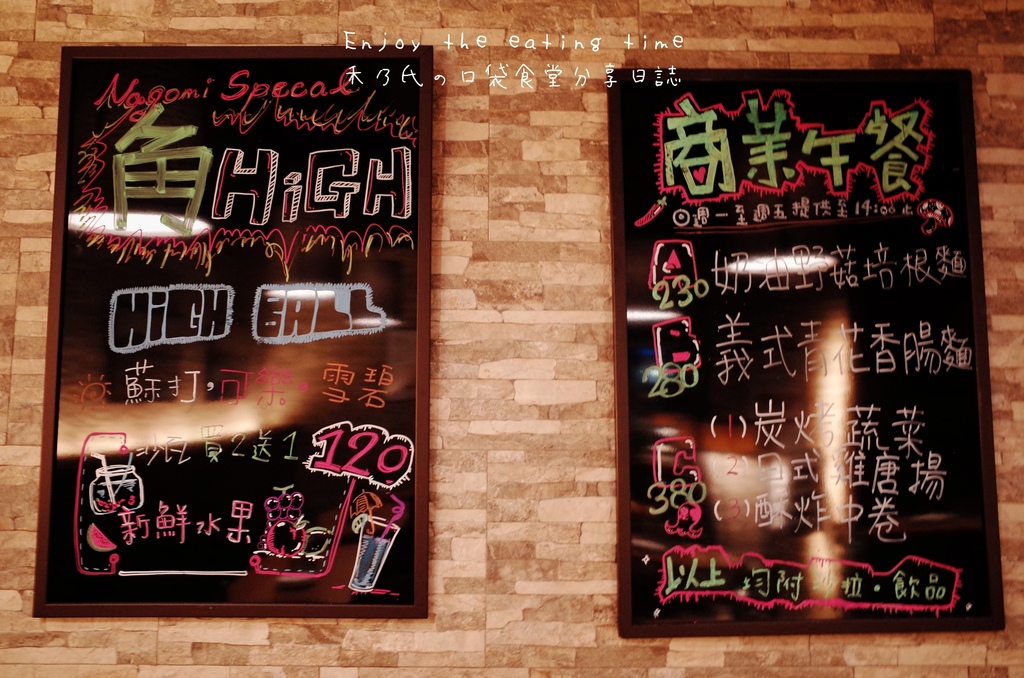 Enjoy the eating time
禾乃氏の口袋食堂分享日誌
Nagomi Specal
角HiGH
HiGH BALL
蘇打,可樂,雪碧
沙瓦買2送1
120
新鮮水果
商業午餐
◎週一至週五提供至14:00止
A 奶油野菇培根麵
230
B 義式青花香腸麵
280
C (1)炭烤蔬菜
380 (2)日式雞唐揚
(3)酥炸中卷
以上均附沙拉。飲品